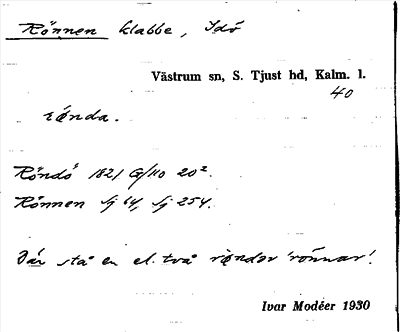 Rönnen klabbe, Idö
Västrum sn, S. Tjust hd, Kalm. l.
40
rø̀nda.
Röndö 1821 G/110 20²
Rönnen Sj 64, Sj 254.
Där stå en el. två rø̀ndər 'rönnar'.
Ivar Modéer 1930